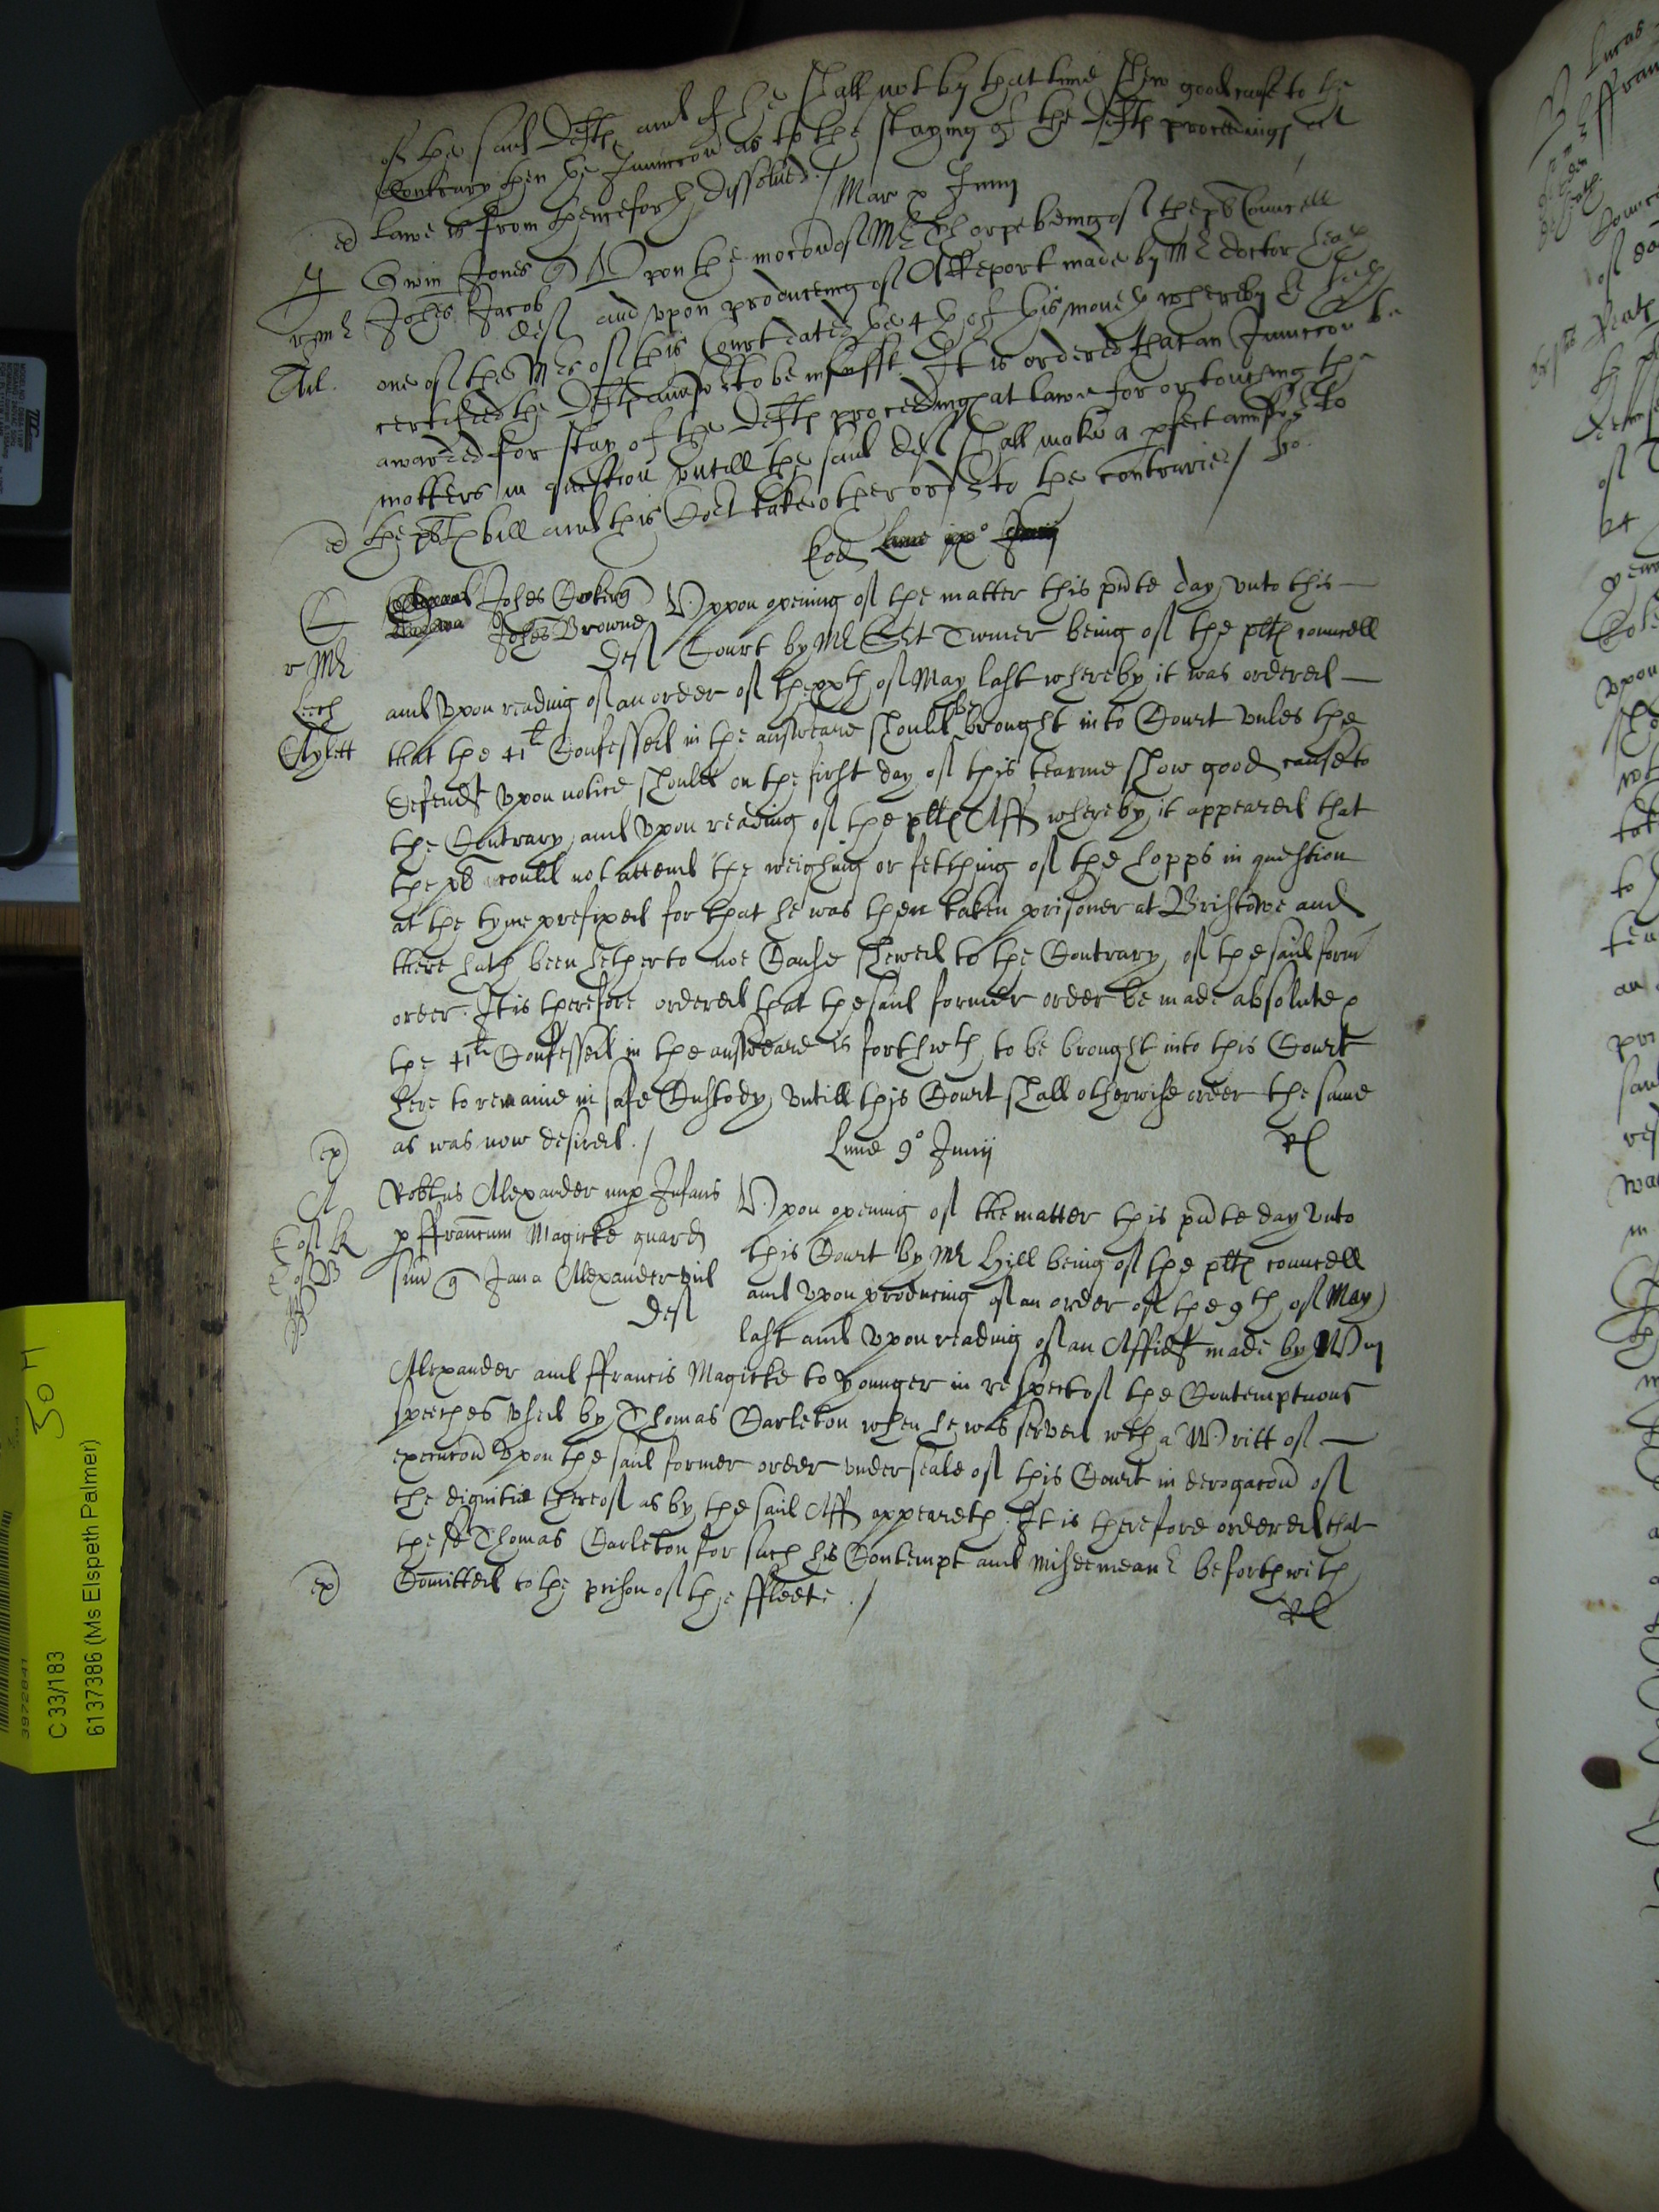 of the said Deftes and if he shall not by that time shew good cause to the
Contrary then the Iniunccon as to the staying of the Deftes proceedings att
ex Lawe is from henceforth dissolved. / Mar x Junij
Jones
Johes Jacob
Def
Upon the mocon of Mr Thorpe being of the pls Councell
and upon producing of A Report made by Mr doctor
one of the Mrs of this Court dated the 4th of this moneth whereby he hath
certified the Deftes answer to be insufft. It is ordered that an Iniunccon be
awarded for stay of the Deftes proceedings at lawe for or touching the
matters in question untill the said Def shall make a pfect answer to
ex the pls bill and this Cort take other order to the contrarie / ho.
Eod
Johes
Johes Browne
Def
Uppon opening of the matter this pnte day unto this
Court by Mr Sert Turner being of the pltes councell
r Mr
and upon reading of an order of the xxth of May last whereby it was ordered
Leech
that the 41l Confessed in the answeare should be brought into Court unles the
Aylett
Defendt upon notice should on the first day of this tearme show good cause to
the Contrary, and upon reading of the pltes Aff whereby it appeared that
the pl could not attend the weighing or fetching of the hopps in question
at the tyme prefixed for that he was then taken prisoner at Bristowe and
there hath been hetherto noe Cause shewed to the Contrary of the said form
order. It is therefore ordered that the said former order be made absolute &
the 41l Confessed in the answeare is forthwth to be brought into this Court
here to remaine in safe Custody untill this Court shall otherwise order the same
ex as was now desired. /
Lune 9o Junij
RL
A
Robtus Alexander nup Infans
p ffrancum Magicke guard
suu q Jana Alexander vid
Def
Upon opening of the matter this pnte day unto
this Court by Mr Hill being of the pltes councell
and upon producing of an order of the 9th of May
last and upon reading of an Affidt made by Wm
Alexander and ffrancis Magicke the younger in respect of the Contemptuous
speeches used by Thomas Carleton when he was served wth a Writt of
execucon upon the said former order under seale of this Court in derogacon of
the dignitie thereof as by the said Aff appeareth. It is therefore ordered that
the sd Thomas Carleton for such his Contempt and misdemeanr be forthwith
ex Comitted to the prison of the ffleete. /
RL
C 33/183
6137386 (Ms Elspeth Palmer)
3972841
50 H